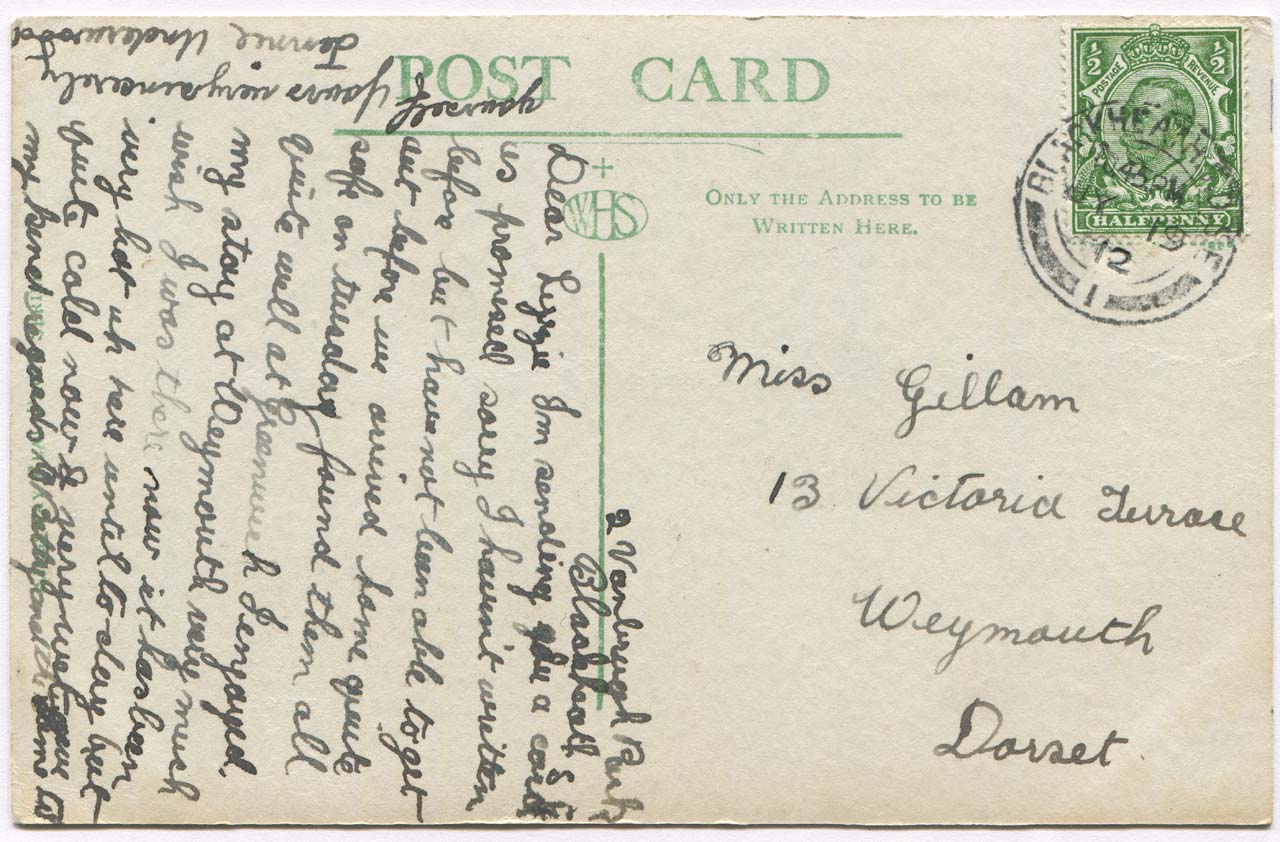 POST CARD
WHS
ONLY THE ADDRESS TO BE
WRITTEN HERE.
½ ½
POSTAGE REVENUE
HALFPENNY
BLACKHEATH
45 PM
19
12
1
Miss Gillam
13 Victoria Terrace
Weymouth
Dorset
2 Vanbrugh Park
Blackheath
S E
Dear Lizzie Im sending you a card
as promised sorry I havn't written
before but have not been able to get
out before we arrived home quite
safe on tuesday found them all
quite well at Greenwich I enjoyed
my stay at Weymouth very much
wish I was there now it has been
very hot up here until to day but
quite cold now & very wet give
my kind regards to Betty and the same to
yourself
Yours very sincerely
Underwood